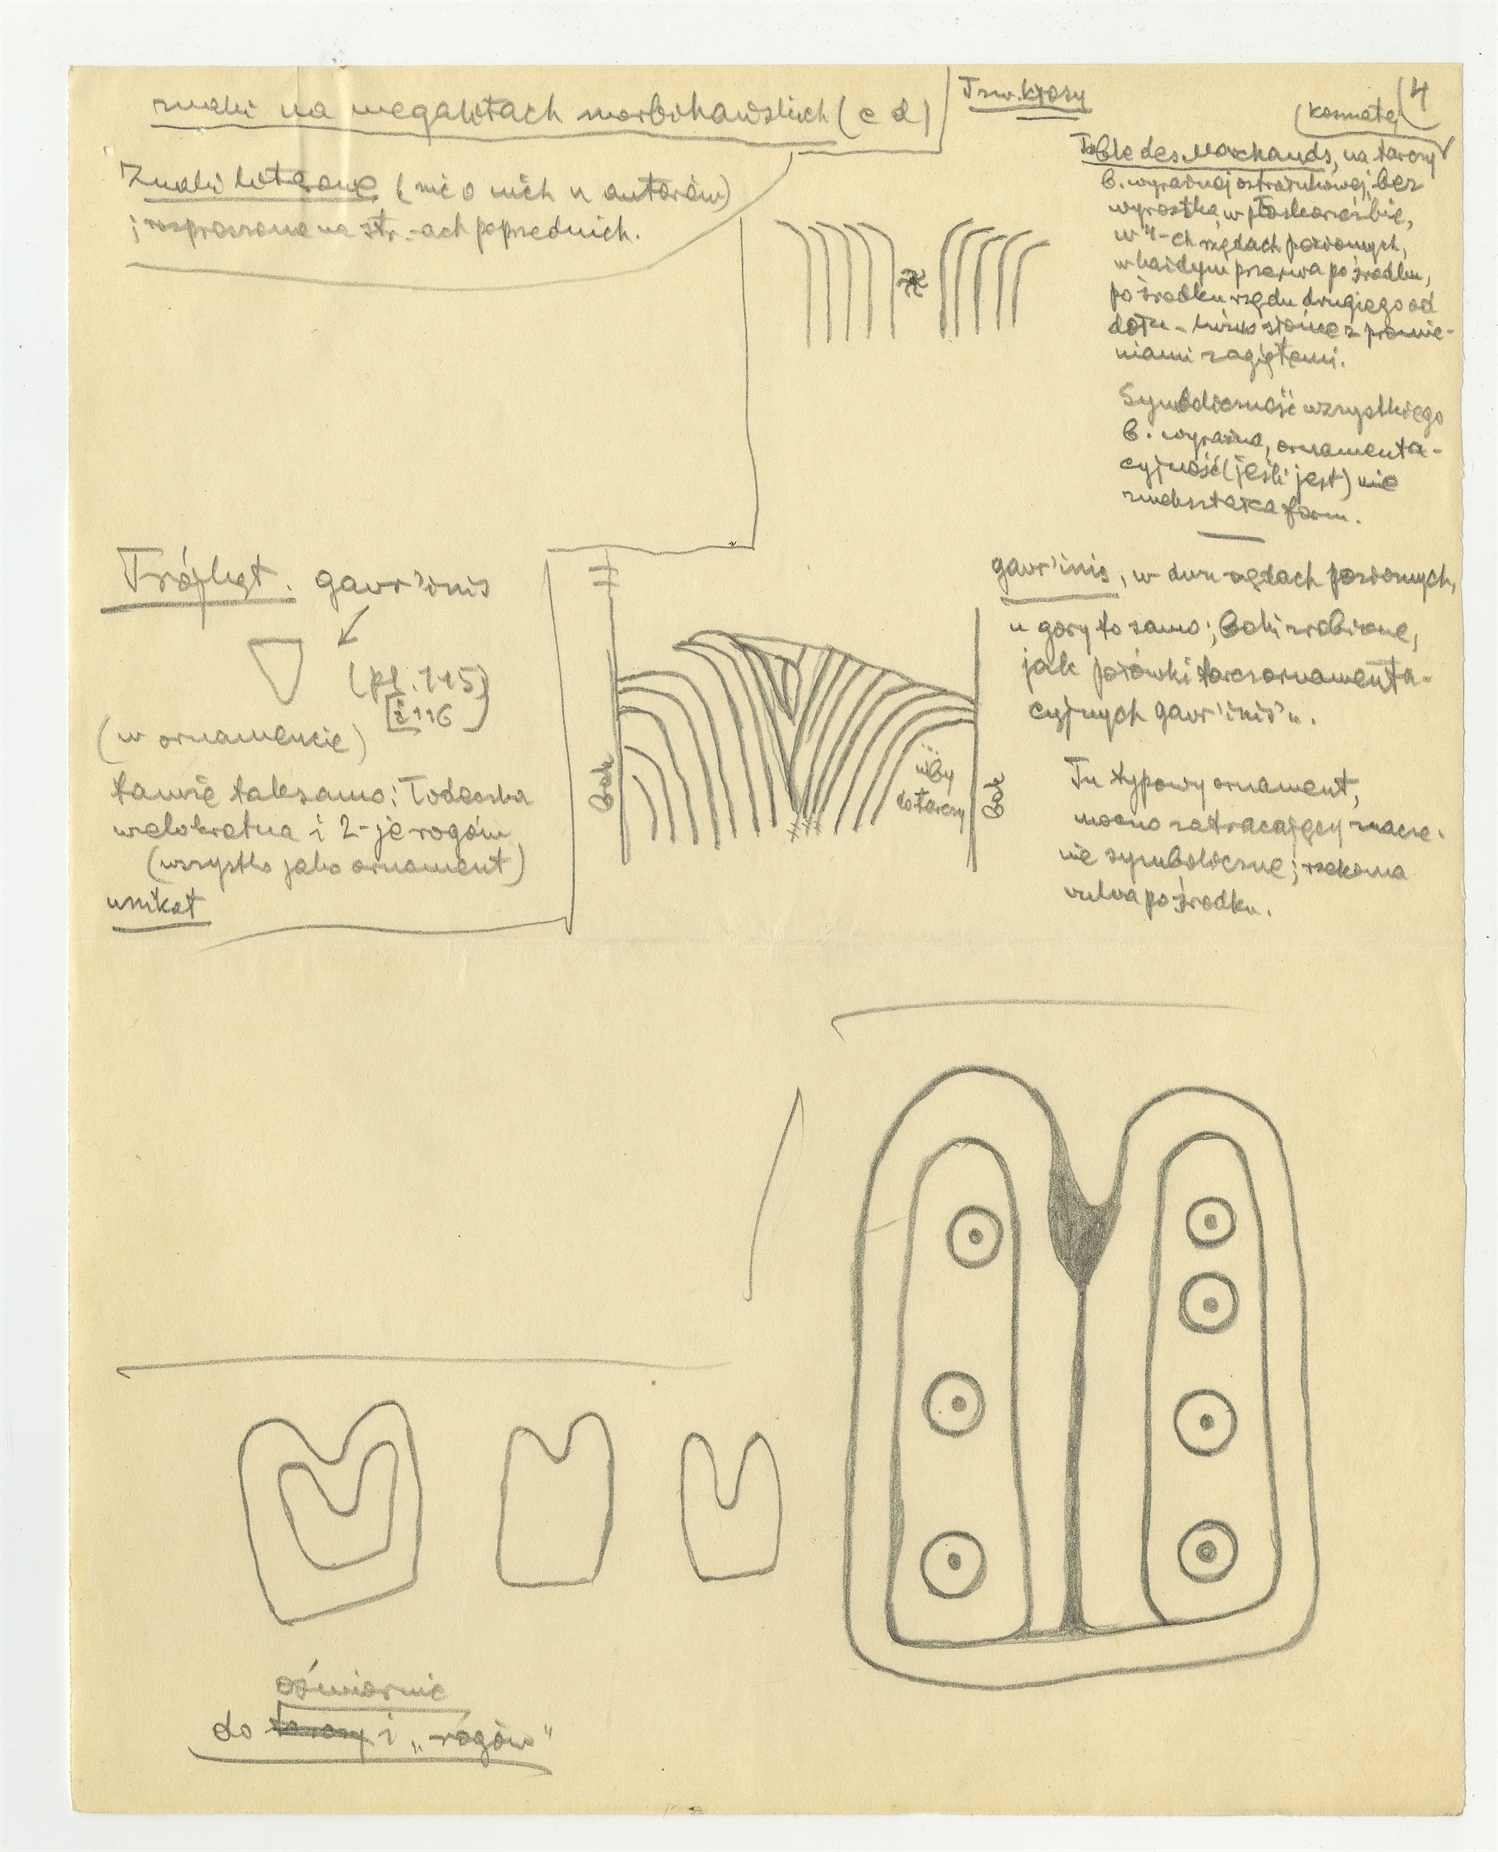 znaki na megalitach morbihawskich (c d)
Tzw. kłosy
(4
(kosmate)
Znaki literowe (nic o nich u autorów)
; rozproszone na str.-ach poprzednich.
Table des Marchands, na tarczy
b. wyraźnej ostrołukowej, bez
wyrostka, w płaskorzeźbie,
w 4-ch rzędach poziomych,
w każdym przerwa po środku,
po środku rzędu drugiego od
dołu – słońce z promie-
niami zagiętemi.
Symboliczność wszystkiego
b. wyraźna, ornamenta-
cyjność (jeśli jest) nie
zniekształca form.
Trójkąt. gavr'inis
(pl. 115)
[i 116]
(w ornamencie)
tamże taksamo: Łódeczka
wielokrotna i 2-je rogów
(wszystko jako ornament)
unikat
bok
niby
do tarczy
bok
gavr'inis, w dwu rzędach poziomych,
u góry to samo; boki zrobione,
jak połówki tarcz ornamenta-
cyjnych gavr'inis'u.
Tu typowy ornament,
mocno zatracający znacze-
nie symboliczne; rzekoma
vulva po środku.
ośmiornic
do tarczy i „rogów"